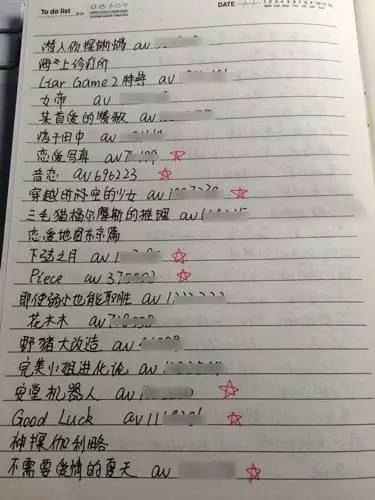 To do list >>
DATE —/—/— 1 2 3 4 5 6 7 8 9 10 11 12
潜入侦探蜥蜴 av
海上诊疗所
Liar Game 2 特典 av
女帝 av
某首爱的 av
疯子田中 av
恋爱写真 av7
音恋 av696223
穿越时空的少女 av
三毛猫福尔摩斯的推理 av
恋爱地图东京篇
下弦之月 av1
Piece av375
即使弱小也能取胜 av
花木木 av
野猪大改造 av
完美小姐进化论 av
安堂机器人 av
Good Luck av11
神探伽利略
不需要爱情的夏天 av